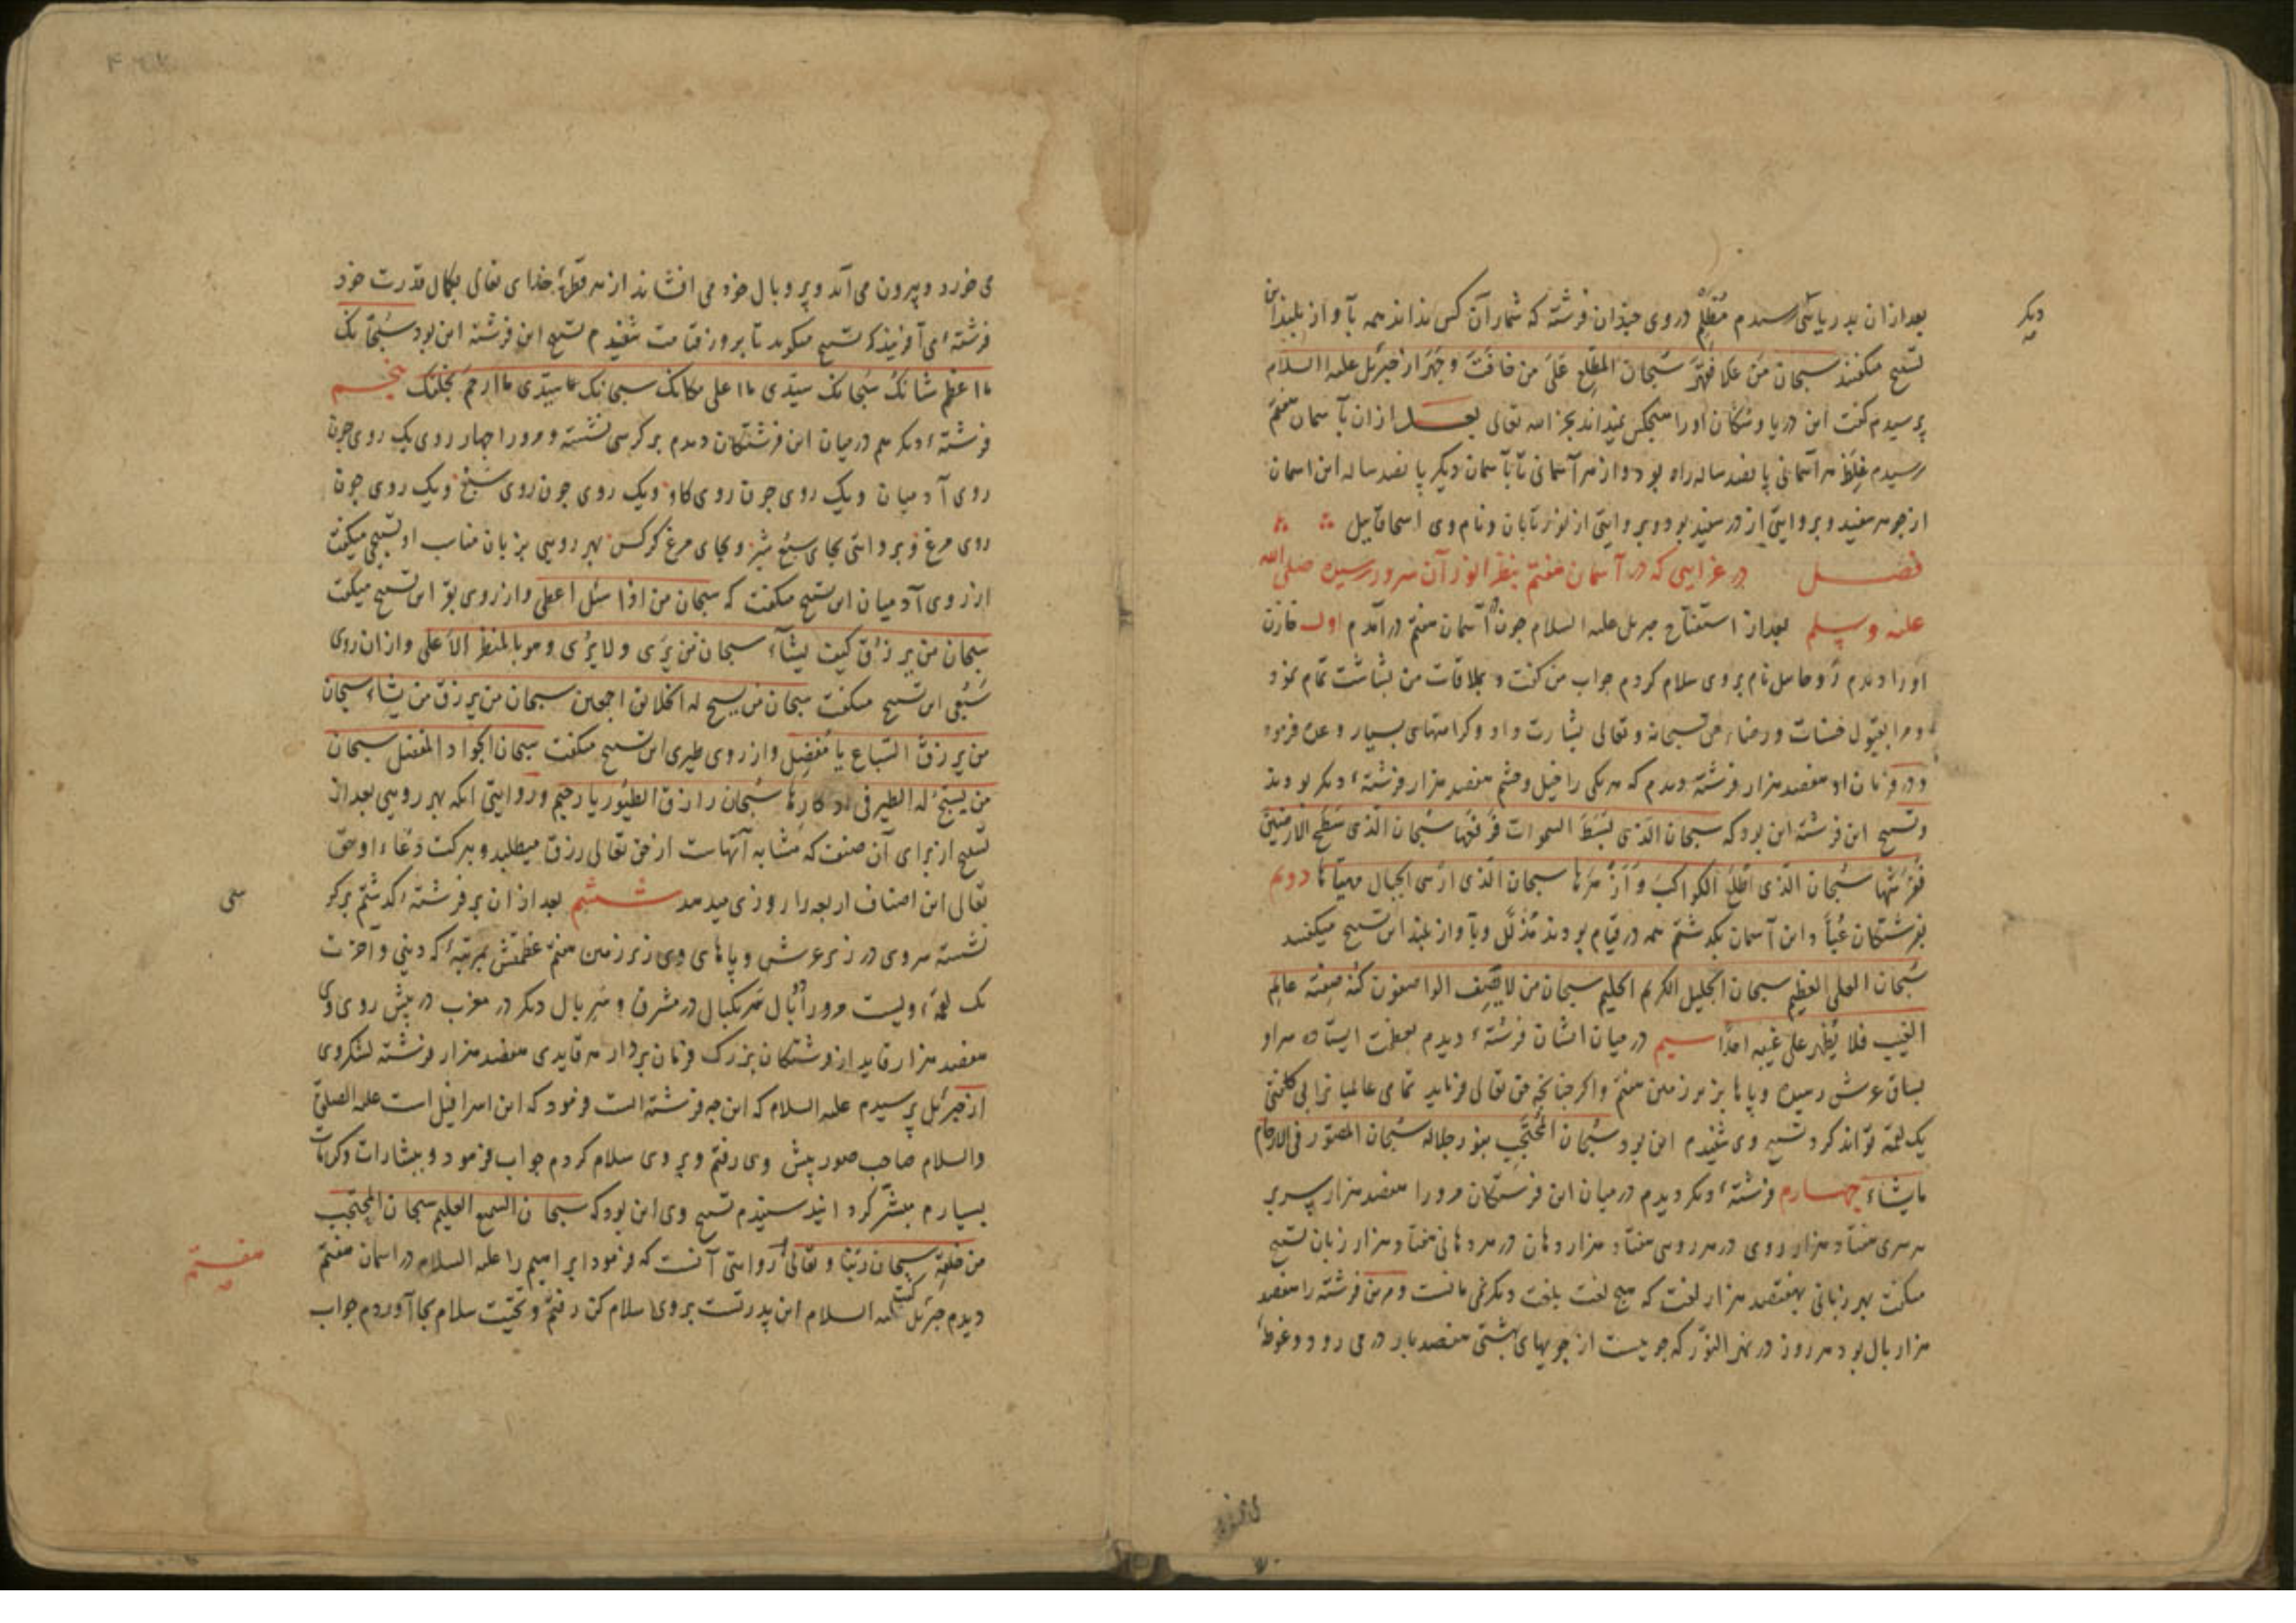 دیگر
بعد ازان بدریائی رسیدم مُظلِم در وی چندان فرشته که شمار آن کس نداند همه بآواز بلند این
تسبیح میکفتند سبحان مَن عَلا فَقَهَرَ سُبحان المطَّلِع عَلیَ من خافَتَ و جَهَرَ از جبرئیل علیه السلام
پرسیدم کفت این دریا و سکان او را هیچکس نمیداند بجز الله تعالی بعد ازان بآسمان هفتم
رسیدم غِلَظ هر آسمانی پانصد ساله راه بود و از هر آسمانی تا بآسمان دیگر پانصد ساله این اسمان
از جوهر سفید و بروایتی از در سفید بود و بروایتی از نور تابان و نام وی اسحاقاییل
فصل در غرایبی که در آسمان هفتم بنظر انور آن سرور رسیده صلی الله
علیه وسلم بعد از استفتاح جبریل علیه السلام چون در آسمان هفتم درآمدم اول خازن
او را دیدم روحاییل نام بر وی سلام کردم جواب من کفت و بملاقات من بشاشت تمام نمود
و مرا بقبول حسنات و رضاء حق سبحانه و تعالی بشارت داد و کرامتهای بسیار وعده فرمود
و در فرمان او هفصد هزار فرشته دیدم که هر یکی را خیل و حشم هفصد هزار فرشتهٔ دیکر بودند
و تسبیح این فرشته این بود که سبحان الّذی بَسَطَ السموات فَرَفَعَها سُبحان الّذی سَطَح الارضین
فَفَرَشَها سُبحان الّذی اَطْلَعَ الکواکبَ وَ اَزْهَرَها سبحان الّذی ارْسی الجبال فهیّأها دویم
بفرشتکان عُبّاد این آسمان بکدشتم همه در قیام بودند مُذلّل و بآواز بلند این تسبیح میکفتند
سُبحان العلی العظیم سبحان الجلیل الکریم الحلیم سبحان من لا یَصِف الواصفون کُنه صِفته عالِم
الغیب فلا یُظهِر علی غیبه احدًا سیم در میان ایشان فرشتهٔ دیدم بعظمت ایستاده سر او
بساق عرش رسیده و پاها بزیر زمین هفتم و اکر چنانچه حق تعالی فرماید تمامی عالمیان را بی کلفتی
یک لقمه تواند کرد تسبیح وی شنیدم این بود سُبحان المُحتَجِب بنور جلاله سُبحان المصوّر فی الارحام
مایشاء چهارم فرشتهٔ دیکر دیدم در میان این فرشتکان مر او را هفصد هزار سر بر
هر سری هفتاد هزار روی در هر روی هفتاد هزار دهان در هر دهانی هفتاد هزار زبان تسبیح
میکفت بهر زبانی بهفتصد هزار لغت که هیچ لغت بلغت دیکر نمی مانست و مر این فرشته را هفصد
هزار بال بود هر روز در نهر النور که جوییست از جویهای بهشتی هفصد بار درمی رود و غوطهٔ
می خورد و بیرون می آید و پر و بال خود می افشاند از هر قطرهٔ خدای تعالی بکمال قدرت خود
فرشتهٔ می آفریند که تسبیح میکوید تا بروز قیامت شنیدم تسبیح این فرشته این بود سُبحانک
ما اعظم شانکَ سُبحانک سیّدی ما اعلی مکانک سبحانک سیّدی ما ارحمَ بخلقک پنجم
فرشتهٔ دیکر هم در میان این فرشتکان دیدم بر کرسی نشسته و مر او را چهار روی یک روی چون
روی آدمیان و یک روی چون روی کاو و یک روی چون روی سَبُع و یک روی چون
روی مرغ و بروایتی بجای سَبُع شیر و بجای مرغ کرکس بهر رویی بزبان مناسب او تسبیحی میکفت
از روی آدمیان این تسبیح میکفت که سبحان من اذا سُئل اعطی و از روی بقر این تسبیح میکفت
سبحان من یرزُق کیف یشآء سبحان من یَرَی و لا یُرَی و هو بالمنظر الاعلی و از ان روی
سَبُعی این تسبیح میکفت سبحان من یسبح له الخلائق اجمعین سبحان من یرزق من یشاء سبحان
من یرزق السّباع یا مُفضِل و از روی طیری این تسبیح میکفت سبحان الجواد المفضل سبحان
من یسبّح له الطیر فی اوکارها سُبحان رازق الطّیور یا رحیم و روایتی آنکه بهر رویی بعد از
تسبیح از برای آن صنف که مشابه آنهاست از حق تعالی رزق میطلبد و ببرکت دُعاء او حق
تعالی این اصناف اربعه را روزی میدهد ششم بعد ازان بر فرشتهٔ کدشتم بر کر
سی
نشسته سر وی در زیر عرش و پاهای وی زیر زمین هفتم عظمتش بمرتبهٔ که دنیی و آخرت
یک لقمهٔ ویست مر او را دو بال هر یکبال در مشرق و سر بال دیکر در مغرب در پیش روی وی
هفصد هزار قاید از فرشتکان بزرک فرمان بردار هر قایدی هفصد هزار فرشته لشکروی
از جبرئیل پرسیدم علیه السلام که این چه فرشته است فرمود که این اسرافیل است علیه الصلوة
والسلام صاحب صور پیش وی رفتم و بر وی سلام کردم جواب فرمود و ببشارات و کرامات
بسیارم مبشّر کردانید شنیدم تسبیح وی این بود که سبحان السمیع العلیم سبحان المحتجب
من خلقه سبحان ربّنا و تعالی روایتی آنست که فرمود ابراهیم را علیه السلام در اسمان هفتم
هفتم
دیدم جبرئیل کفت علیه السلام این پدر تست بر وی سلام کن رفتم و تحیّت سلام بجا آوردم جواب